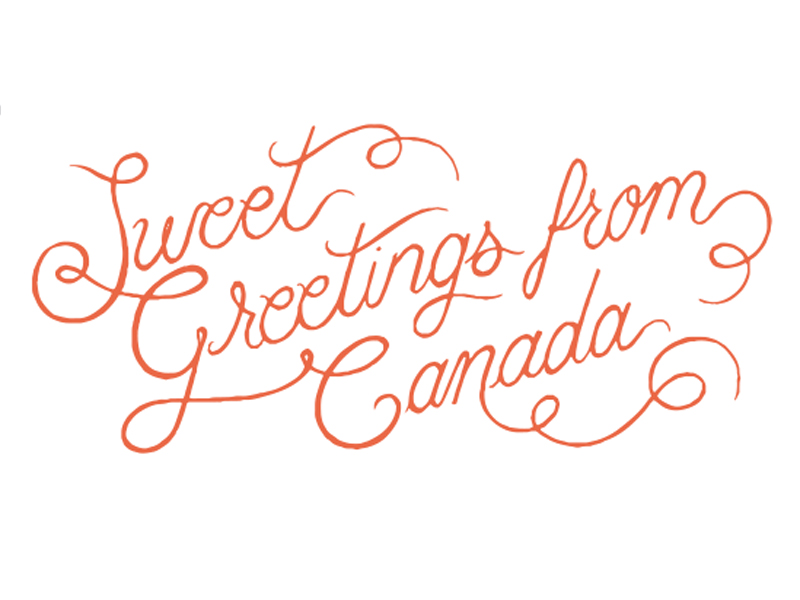 Sweet
Greetings from
Canada